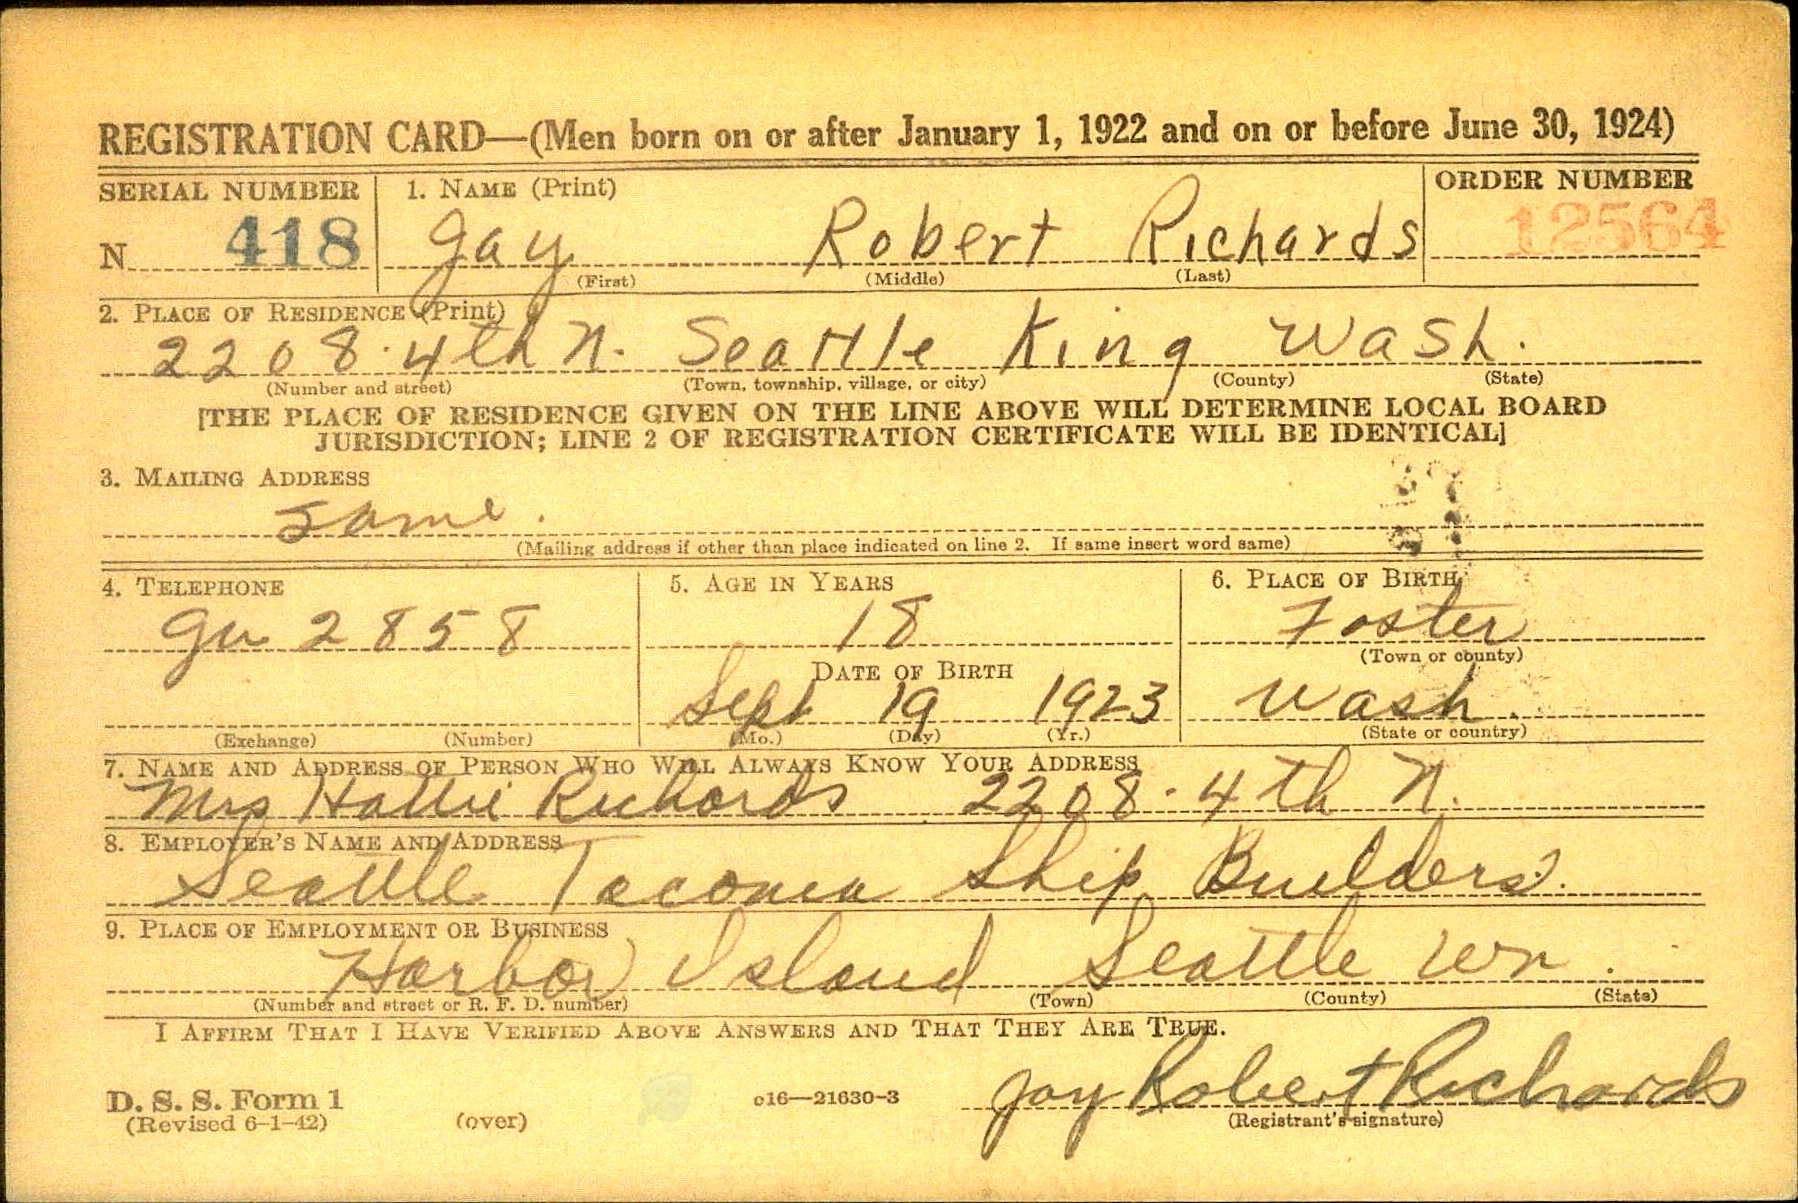 REGISTRATION CARD—(Men born on or after January 1, 1922 and on or before June 30, 1924)
SERIAL NUMBER 1. NAME (Print) ORDER NUMBER
N 418 Jay Robert Richards 12564
(First) (Middle) (Last)
2. PLACE OF RESIDENCE (Print)
2208 · 4th N. Seattle King Wash.
(Number and street) (Town, township, village, or city) (County) (State)
[THE PLACE OF RESIDENCE GIVEN ON THE LINE ABOVE WILL DETERMINE LOCAL BOARD
JURISDICTION; LINE 2 OF REGISTRATION CERTIFICATE WILL BE IDENTICAL]
3. MAILING ADDRESS
Same.
(Mailing address if other than place indicated on line 2. If same insert word same)
4. TELEPHONE 5. AGE IN YEARS 6. PLACE OF BIRTH
2858 18 Foster
(Town or county)
DATE OF BIRTH
Sept 19 1923 Wash.
(Exchange) (Number) (Mo.) (Day) (Yr.) (State or country)
7. NAME AND ADDRESS OF PERSON WHO WILL ALWAYS KNOW YOUR ADDRESS
Mrs Hattie Richards 2208 · 4th N.
8. EMPLOYER'S NAME AND ADDRESS
Seattle Tacoma Ship Builders.
9. PLACE OF EMPLOYMENT OR BUSINESS
Harbor Island Seattle Wn.
(Number and street or R. F. D. number) (Town) (County) (State)
I AFFIRM THAT I HAVE VERIFIED ABOVE ANSWERS AND THAT THEY ARE TRUE.
D. S. S. Form 1 c16—21630-3 Jay Robert Richards
(Revised 6-1-42) (over) (Registrant's signature)